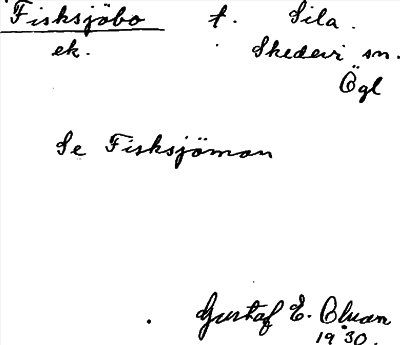 Fisksjöbo t. Sila.
ek. Skedevi sn.
Ögl
Se Fisksjömon
Gustaf E.
1930.